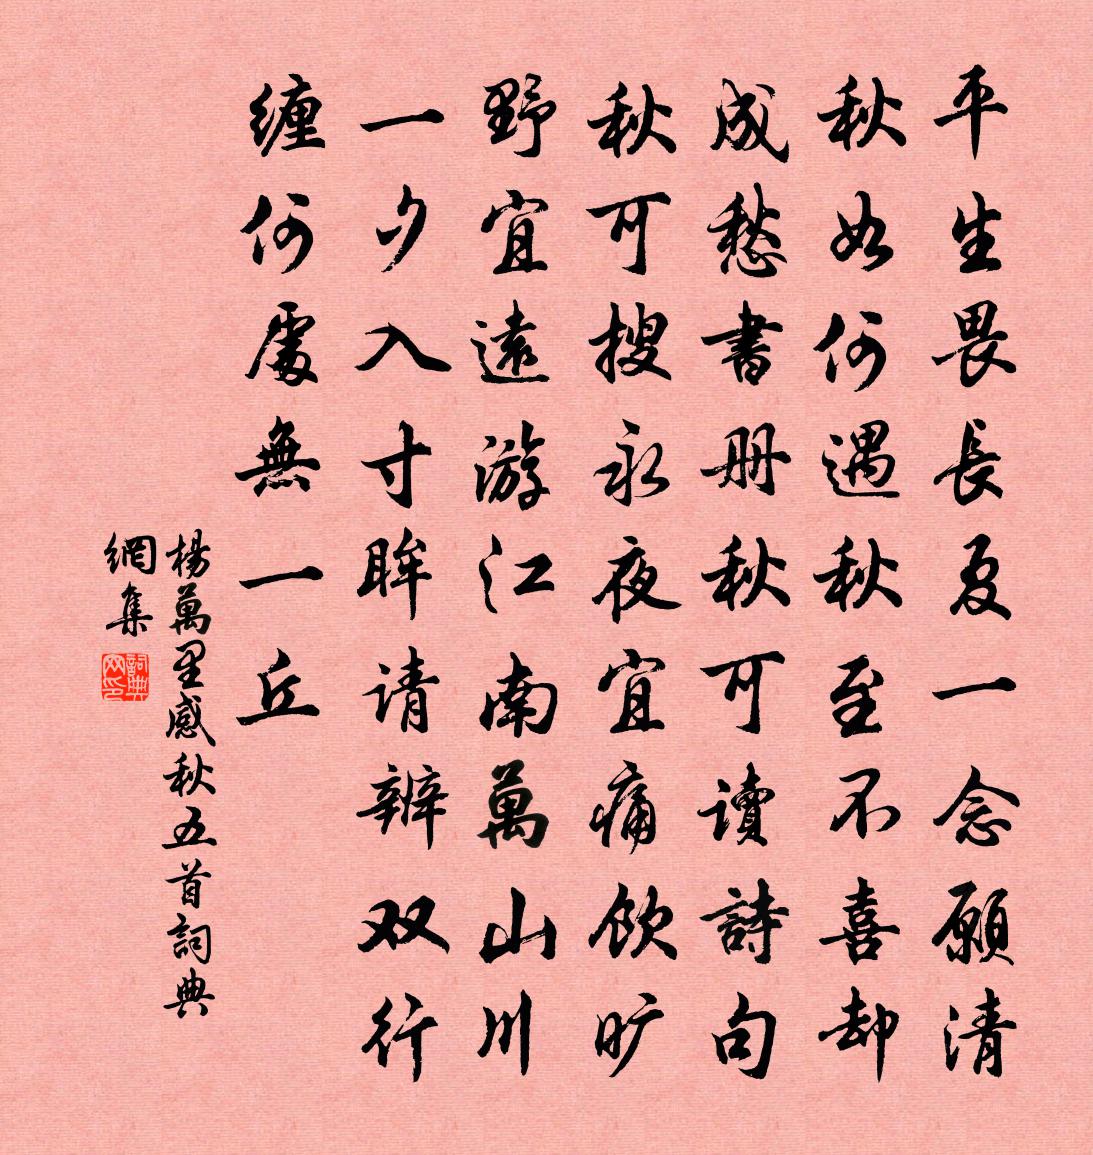 平生畏長夏一念願清
秋如何遇秋至不喜却
成愁書册秋可讀詩句
秋可搜永夜宜痛飲旷
野宜遠游江南萬山川
一夕入寸眸请辦双行
缠何處無一丘
楊萬里感秋五首詞典
網集
詞典
网印